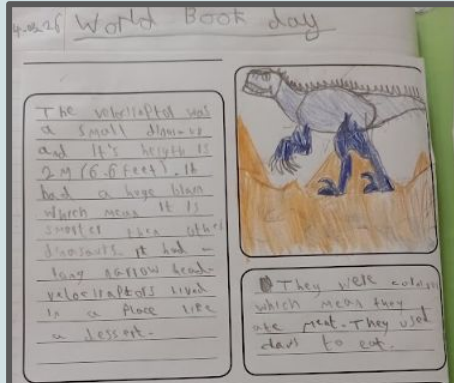 World Book day
The velociraptor was
a small dinosaur
and it's height is
2 M (6.6 feet). It
had a huge
which mean it is
smarter then other
dinosaurs. it had a
long narrow head.
velociraptors lived
in a place like
a dessert.
They were
which mean they
ate meat. They used
to eat.